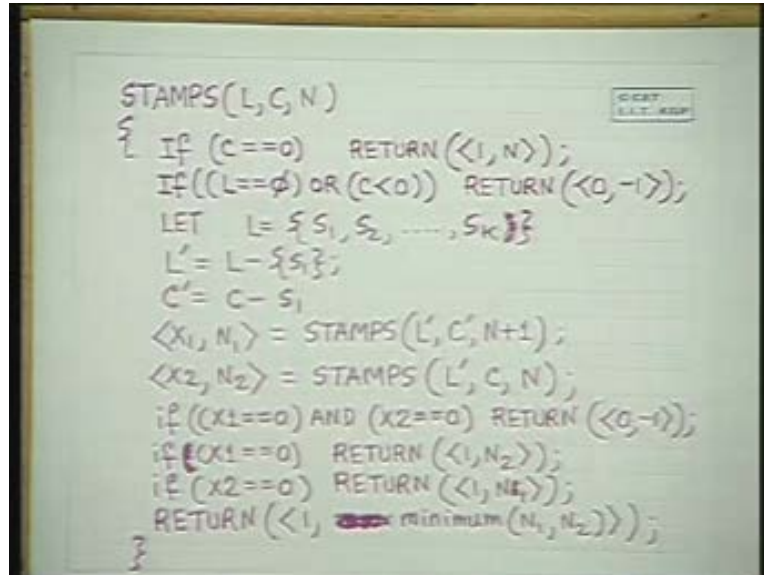 STAMPS(L, C, N)
C CET
I.I.T. KGP
{ If (C==0) RETURN(<1, N>);
If((L==φ) OR (C<0)) RETURN(<0,-1>);
LET L= {S1, S2, ----, SK}
L'= L-{S1};
C'= C- S1
<X1, N1> = STAMPS(L', C', N+1);
<X2, N2> = STAMPS(L', C, N);
if((X1==0) AND (X2==0) RETURN(<0,-1>);
if(X1==0) RETURN(<1, N2>);
if (X2==0) RETURN(<1, N1>);
RETURN(<1, minimum(N1, N2)>);
}